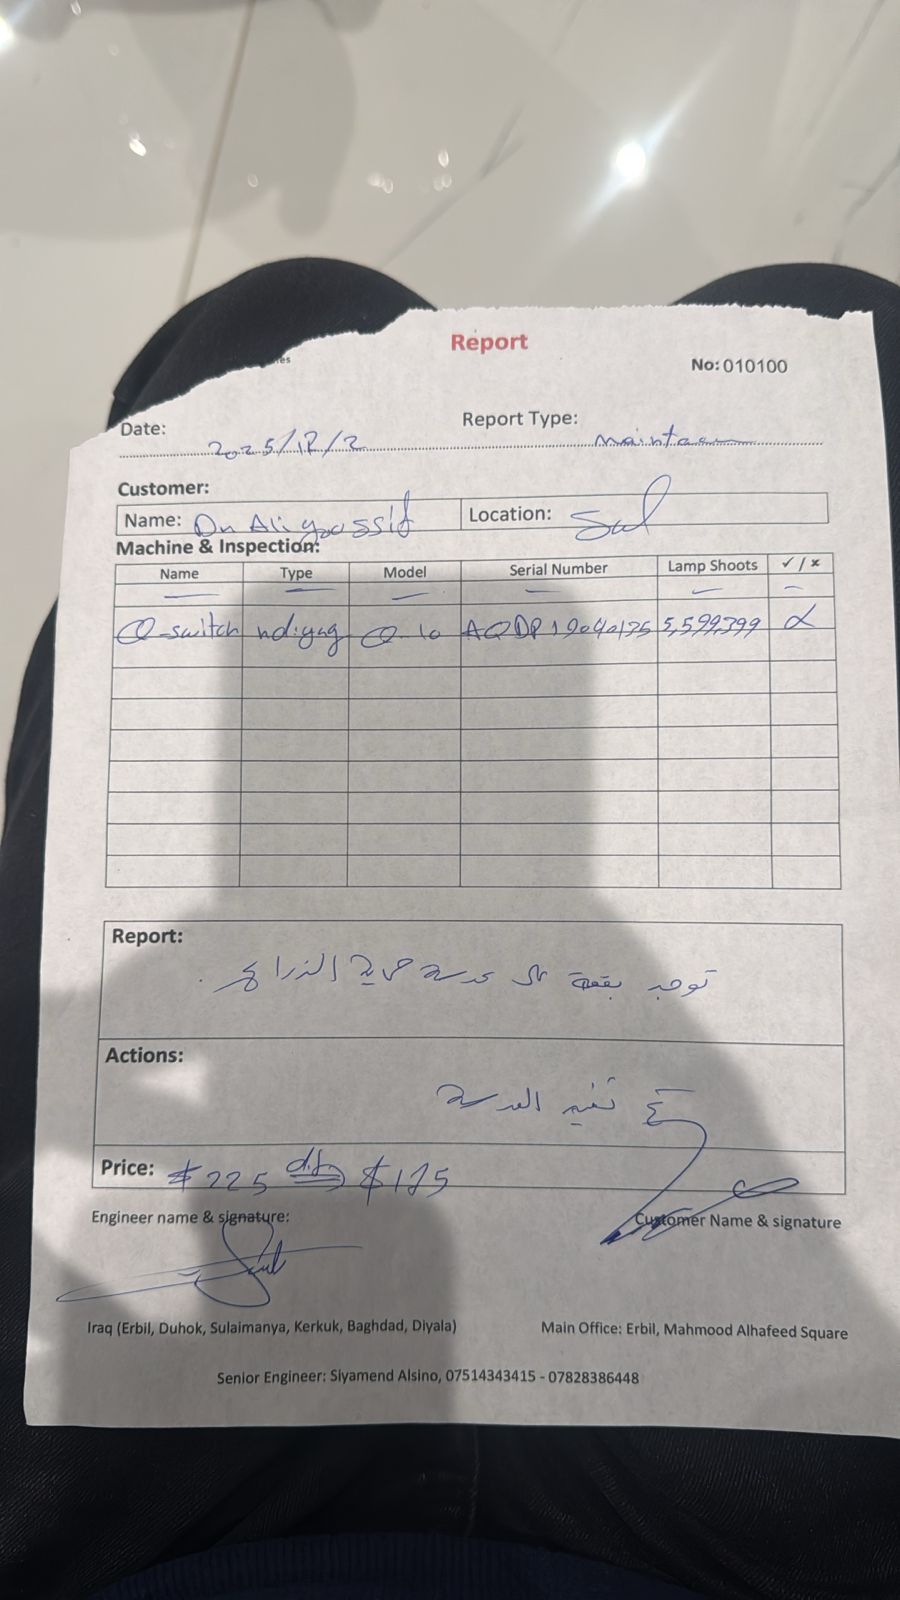 Report
No: 010100
Date: 2025/12/2
Report Type: maintae
Customer:
Name: Dr Ali youssif
Location: Sul
Machine & Inspection:
Name Type Model Serial Number Lamp Shoots ✓ / ×
Q-switch nd:yag Q-10 5,599,399
Report:
توجد بقعة على عدسة حماية الذراع.
Actions:
تم تغيير العدسة
Price: $225 $175
Engineer name & signature:
Customer Name & signature
Iraq (Erbil, Duhok, Sulaimanya, Kerkuk, Baghdad, Diyala)
Main Office: Erbil, Mahmood Alhafeed Square
Senior Engineer: Siyamend Alsino, 07514343415 - 07828386448